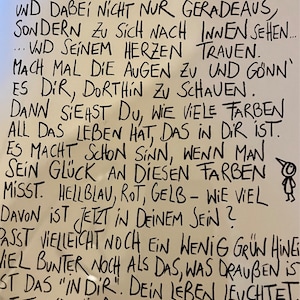 UND DABEI NICHT NUR GERADEAUS,
SONDERN ZU SICH NACH INNEN SEHEN...
...UND SEINEM HERZEN TRAUEN.
MACH MAL DIE AUGEN ZU UND GÖNN'
ES DIR, DORTHIN ZU SCHAUEN.
DANN SIEHST DU, WIE VIELE FARBEN
ALL DAS LEBEN HAT, DAS IN DIR IST.
ES MACHT SCHON SINN, WENN MAN
SEIN GLÜCK AN DIESEN FARBEN
MISST. HELLBLAU, ROT, GELB - WIE VIEL
DAVON IST JETZT IN DEINEM SEIN?
PASST VIELLEICHT NOCH EIN WENIG GRÜN HINEI
VIEL BUNTER NOCH ALS DAS, WAS DRAUßEN IS
IST DAS "IN DIR". DEIN LEBEN LEUCHTET